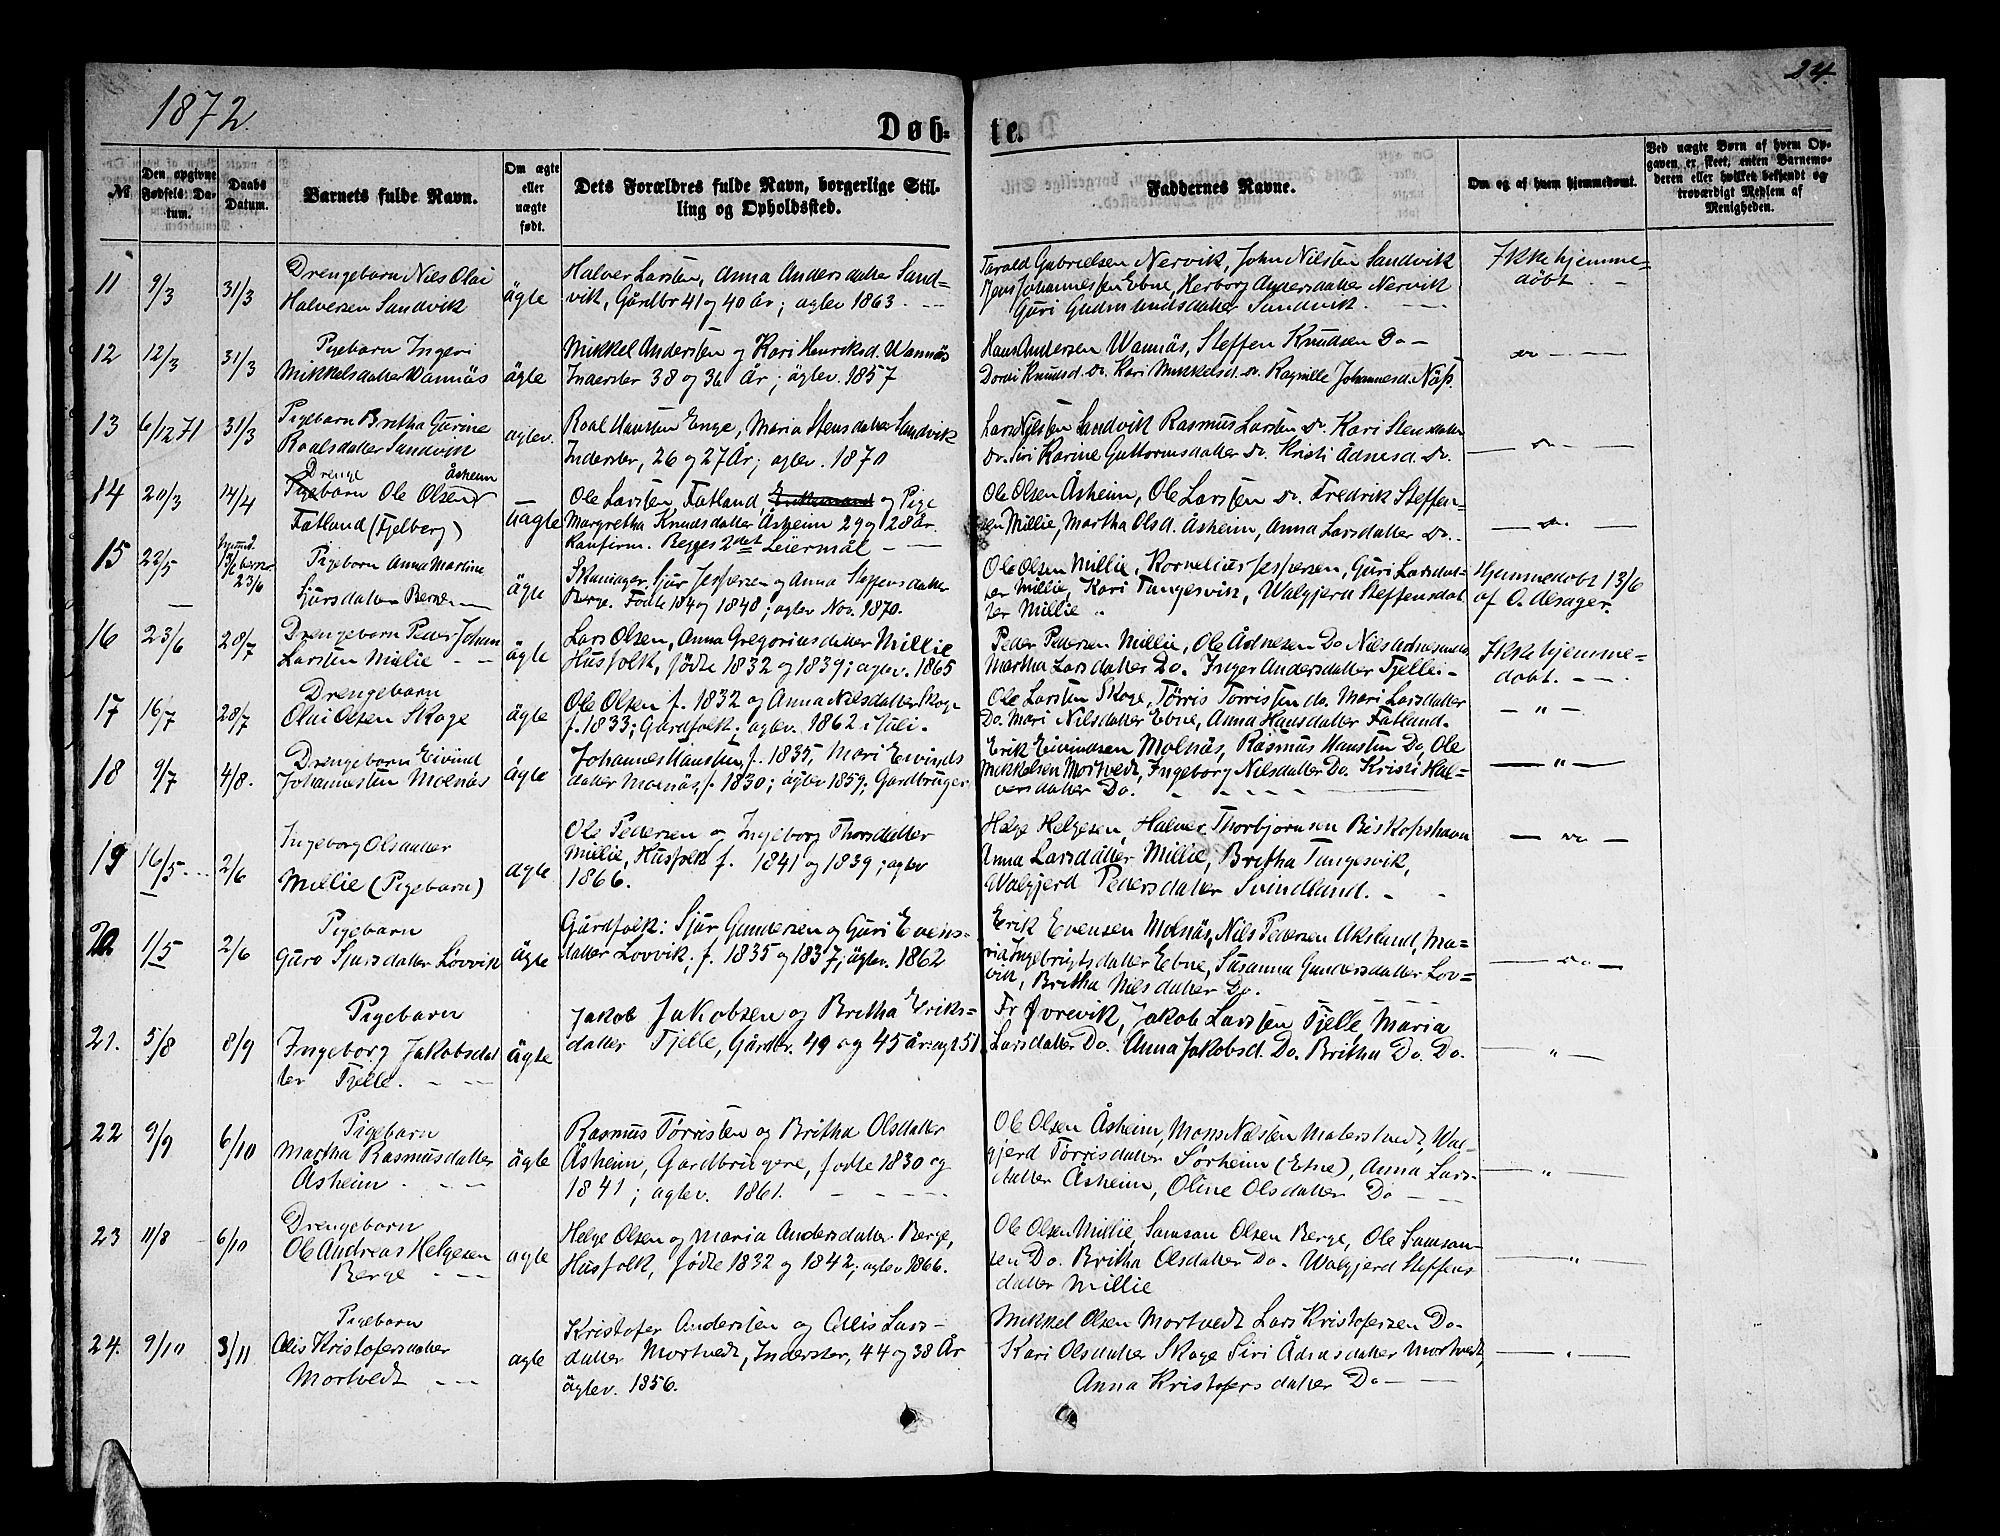 1872.
24.
Døb-
te.
№
Den opgivne
Fødsels Da-
tum.
Daabs
Datum.
Barnets fulde Navn.
Om ægte
eller
uægte
født.
Dets Forældres fulde Navn, borgerlige Stil-
ling og Opholdssted.
Faddernes Navne.
Om og af hvem hjemmedømt.
Ved uægte Børn af hvem Op-
gaven er skeet, enten Barnemo-
deren eller hvilket bekjendt og
troværdigt Medlem af
Menigheden.
11 9/3 31/3
Drengebarn Nils Olai
Halversen Sandvik
ägte
Halver Larsen, Anna Andersdatter Sand=
vik, Gårdbr 41 og 40 år; agtev 1863.
Tarald Gabrielsen Nervik, John Nilsten Sandvik
Jens Johannessen Ebne, Herborg Andersdatter Nervik
Guri Gudmundsdatter Sandvik.
Ikke hjemme=
døbt.
12 12/3 31/3
Pigebarn Ingeri
Mikkelsdatter Wannäs
ägte
Mikkel Andersen og Kari Henriksd. Wannäs
Inderster 38 og 36 år; ägtev. 1857
Hans Andersen Wannäs, Steffen Knudsen Do
Dordi Knudsd. Do. Kari Mikkelsd. Do. Ragnille Johannesd. Näss.
Do
13 6/12 71 31/3
Pigebarn Britha Gurine
Roalsdatter Sandvik
agtev.
Roal Hansten Enge, Maria Stensdatter Sandvik
Inderster, 26 og 27 År; agtev. 1870
Lars Nilsten Sandvik Rasmus Larsten Do. Kari Stensdatter
Do. Siri Karine Guttormsdatter Do. Kristi Adnesd. Do.
Do
14 20/3 14/4
Drenge Åsheim
Pigebarn Ole Olsen
Fatland (Fjelberg)
uagte
Ole Larsten Fatland, og Pige
Margretha Knudsdatter Åsheim 29 og 28 år.
Konfirm. Begges 2det Leiermål
Ole Olsen Åsheim, Ole Larsten Do. Fredrik Steffen-
sen Millie, Martha Olsd. Åsheim, Anna Larsdatter Do.
Do.
15 22/5 hjemmed. 13/6 23/6
Pigebarn Anna Martine
Sjursdatter Berge
ägte
Skomager Sjur Jespersen og Anna Steffensdatter
Berge. Fødte 184 og 1848; agtev Nov. 1870.
Ole Olsen Millie, Kornelius Jespersen, Guri Larsdat-
ter Millie, Kari Tungesvik, Walgjerd Steffensdat
ter Millie
Hjemmedobt 13/6
af O. Alsager.
16 23/6 28/7
Drengebarn Peder Johan
Larsten Millie
ägte
Lars Olsen, Anna Gregoriusdatter Millie
Husfolk, fødte 1832 og 1839; agtev. 1865
Peder Pedersen Millie, Ole Ådnesen Do Nils Adnesen Do
Martha Larsdatter Do. Inger Andersdatter Tjelle
Ikke hjemme=
døbt.
17 16/7 28/7
Drengebarn
Olai Olsen Skoge
ägte
Ole Olsen f. 1832 og Anna Nilsdatter Skoge
f. 1833; Gardfolk; agtev. 1862 i Juli.
Ole Larsten Skoge, Tørris Torristen do. Mari Larsdatter
Do. Mari Nilsdatter Ebne, Anna Hansdatter Fatland.
"
18 9/7 4/8.
Drengebarn Eivind
Johannesten Molnäs
ägte
Johannes Hansten, f. 1835, Mari Eivinds
datter Molnäs, f. 1830; ägtev 1859; Gardbruger
Erik Eivindsen Molnäs, Rasmus Hansten Do, Ole
Mikkelsen Mortvedt, Ingeborg Nilsdatter Do. Kristi Hal=
versdatter Do.
"
19 16/5 2/6
Ingeborg Olsdatter
Millie (Pigebarn)
agte
Ole Pedersen og Ingeborg Thorsdatter
Millie, Husfolk f. 1841 og 1839; agtev
1866.
Helge Helgesen, Halver Thorbjørnsen Biskopshavn
Anna Larsdatter Millie, Britha Tungesvik,
Walgjerd Pedersdatter Svindland.
Do
20. 1/5 2/6
Pigebarn
Guro Sjursdatter Løvvik
ägte
Gårdfolk: Sjur Gundersen og Guri Evens-
datter Lovvik, f. 1835 og 1837; ägtev. 1862
Erik Evensen Molnäs, Nils Pedersen Aksland, Ma=
ria Ingebrigtsdatter Ebne, Susanna Gundersdatter Lov=
vik, Britha Nilsdatter Do.
Do
21. 5/8 8/9
Pigebarn
Ingeborg Jakobsdat
ter Tjelle.
ägte
Jakob Jakobsen og Britha Eriks=
datter Tjelle, Gårdbr. 49 og 45 år, agt 51.
Fr Øvrevik, Jakob Larsten Tjelle, Maria
Larsdatter Do. Anna Jakobsd. Do. Britha Do. Do.
"
22 9/9 6/10
Pigebarn
Martha Rasmusdatter
Åsheim.
ägte
Rasmus Tørristen og Britha Olsdatter
Åsheim, Gardbrugere, fødte 1830 og
1841; agtev. 1861.
Ole Olsen Åsheim, Mons Nilsten Materstvedt, Wal
gjerd Tørrisdatter Sørheim (Etne), Anna Lars-
datter Åsheim, Oline Olsdatter Do
"
23 11/8 6/10
Drengebarn
Ole Andreas Helgesen
Berge
agte
Helge Olsen og Maria Andersdatter Berge,
Husfolk, fødte 1832 og 1842; agtev 1866.
Ole Olsen Millie Samson Olsen Berge, Ole Samson-
sen Do. Britha Olsdatter Do. Walgjerd Steffens
datter Millie
"
24. 9/10 3/11
Pigebarn
Alis Kristofersdatter
Mortvedt
agte
Kristofer Andersten og Alis Lars-
datter Mortvedt, Inderster, 44 og 38 År
ägtev. 1856.
Mikkel Olsen Mortvedt Lars Kristofersen Do-
Kari Olsdatter Skoge Siri Ådnesdatter Mortvedt,
Anna Kristofersdatter Do
"